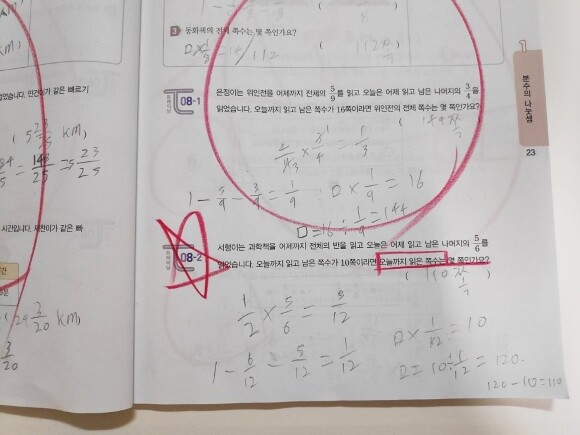 3 동화책의 전체 쪽수는 몇 쪽인가요?
112
( 112쪽
분수의 나눗셈
23
08-1 은정이는 위인전을 어제까지 전체의 5/9를 읽고 오늘은 어제 읽고 남은 나머지의 3/4을
읽었습니다. 오늘까지 읽고 남은 쪽수가 16쪽이라면 위인전의 전체 쪽수는 몇 쪽인가요?
( 144쪽
1 - 5/9 - 3/9 = 1/9
□ × 1/9 = 16
□ = 16 ÷ 1/9 = 144
08-2 서형이는 과학책을 어제까지 전체의 반을 읽고 오늘은 어제 읽고 남은 나머지의 5/6를
읽었습니다. 오늘까지 읽고 남은 쪽수가 10쪽이라면 오늘까지 읽은 쪽수는 몇 쪽인가요?
( 110쪽
1/2 × 5/6 = 5/12
1 - 6/12 - 5/12 = 1/12
□ × 1/12 = 10
□ = 10 ÷ 1/12 = 120.
120 - 10 = 110
km)
었습니다. 민건이가 같은 빠르기
( 5 23/25 km)
= 148/25 = 5 23/25
시간입니다. 재찬이가 같은 빠
3/20 km)
3/20